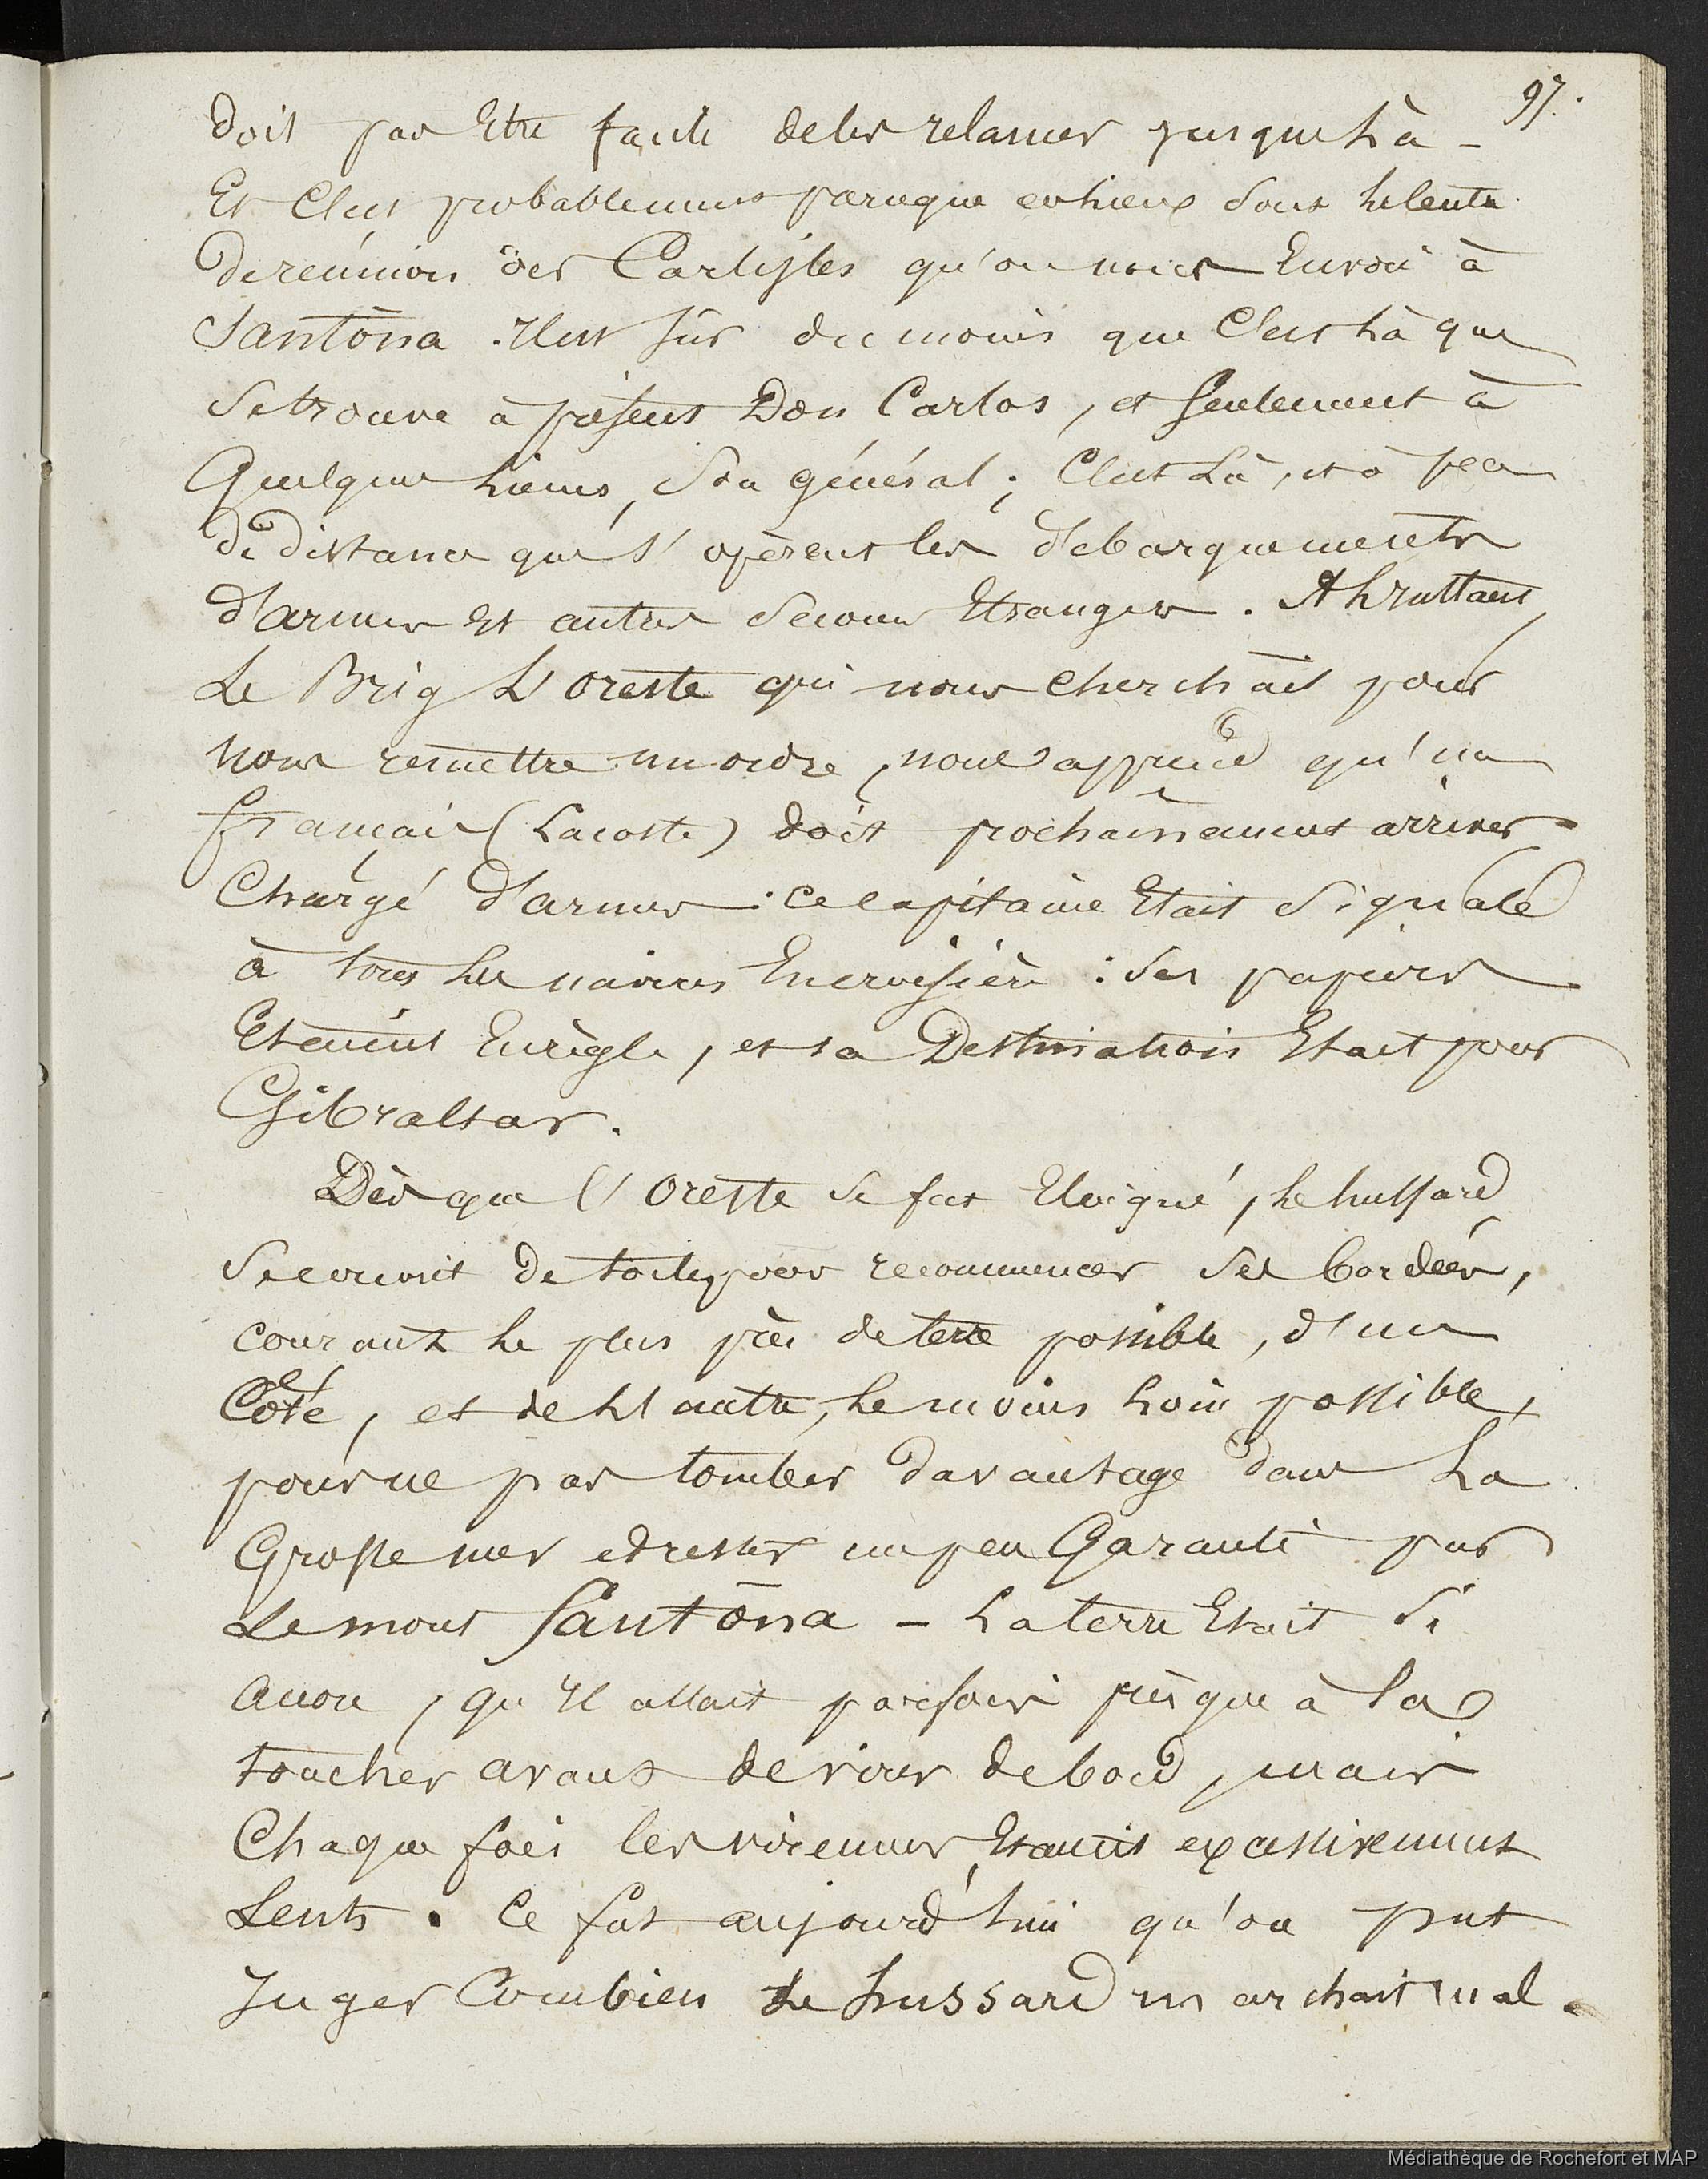 97.
doit pas Etre facile de les relancer jusques là _
Et C'est probablement parceque ces lieux sont le centre
de réunion des Carlistes qu'on nous Envoie à
Santôna . Il est sûr du moins que C'est là que
se trouve à présent Don Carlos , et seulement à
quelques lieues, son général ; C'est là, et à peu
de distance que s'opèrent les débarquements
d'armes et autres secours Etrangers . A l'instant,
Le Brig L'oreste qui nous cherchait pour
nous remettre un ordre , nous apprend qu'un
français (Lacoste) doit prochainement arriver
Chargé d'armes : ce capitaine Etait signalé
à tous les navires En croisière : ses papiers
Etaient En règle , et sa Destination Etait pour
Gibraltar .
Dès que l'oreste se fut Eloigné , le hussard
se couvrit de toile pour recommencer ses bordées ,
courant le plus près de terre possible , d'un
Côté , et de l'autre , le moins loin possible ,
pour ne pas tomber davantage dans la
Grosse mer et rester un peu Garanti par
Le mont Santôna – La terre Etait si
accore , qu'Il allait parfois presque à la
toucher avant de virer de bord , mais
Chaque fois les virements Etaient excessivement
Lents . Ce fut aujourd'hui qu'on put
Juger Combien Le hussard marchait mal .
Médiathèque de Rochefort et MAP